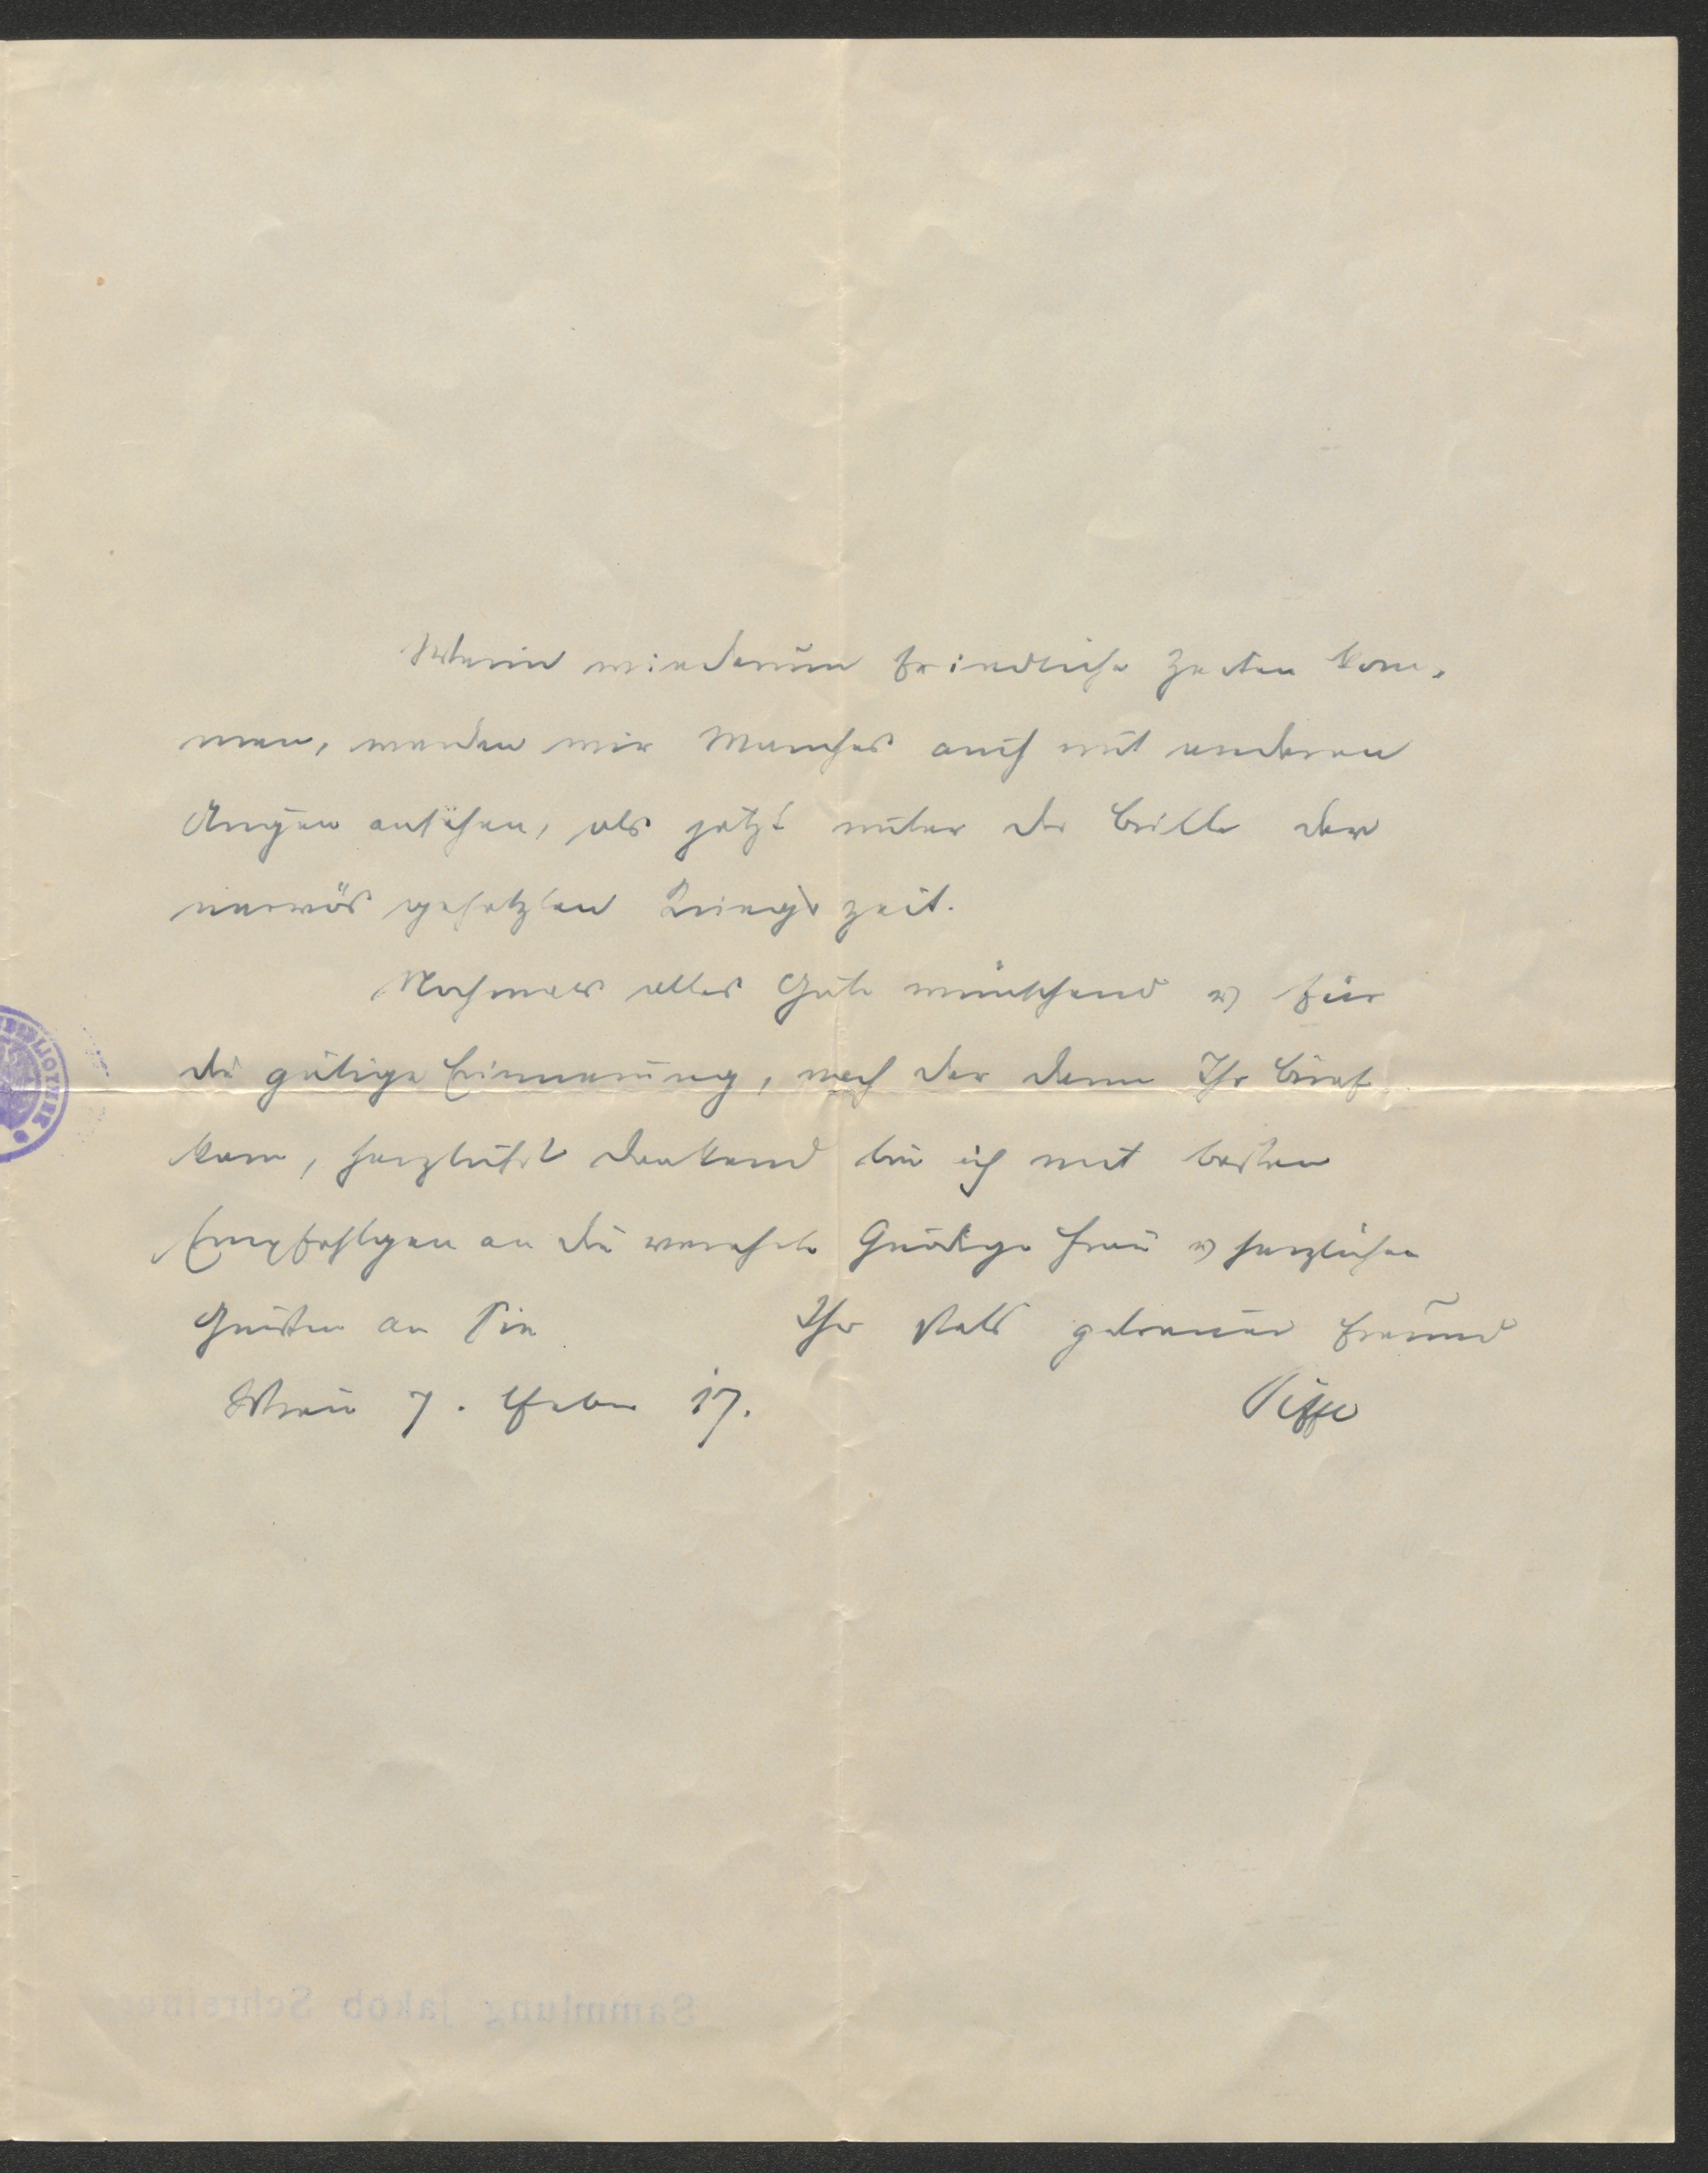 Wenn wiederum friedliche Zeiten kom-
men, werden wir Manches auch mit anderen
Augen ansehen, als jetzt unter der Brille der
nervös gehetzten Kriegszeit.
Nochmals alles Gute wünschend u für
die gütige Erinnerung, nach der dann Ihr Brief
kam, herzlichst dankend bin ich mit besten
Empfehlgen an die verehrte Gnädige Frau u herzlichen
Grüßen an Sie Ihr stets getreuer Freund
Wien 7. Feber 17.
BIBLIOTHEK
Sammlung Jakob Schreiner